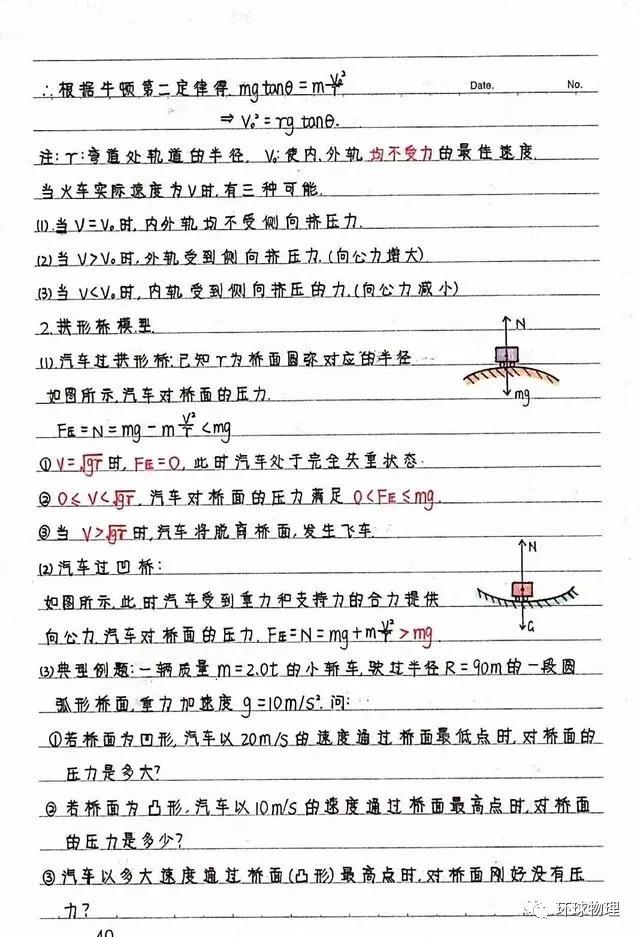 ∴根据牛顿第二定律得 mgtanθ=mV₀²/r
Date. No.
⇒ V₀²=rgtanθ.
注:r:弯道处轨道的半径. V₀:使内、外轨均不受力的最佳速度.
当火车实际速度为V时,有三种可能.
(1).当V=V₀时,内外轨均不受侧向挤压力.
(2)当V>V₀时,外轨受到侧向挤压力.(向心力增大)
(3)当V<V₀时,内轨受到侧向挤压的力.(向心力减小)
2.拱形桥模型.
(1)汽车过拱形桥:已知r为桥面圆弥对应的半径
如图所示,汽车对桥面的压力.
F压=N=mg-mV²/r<mg
N
mg
①V=√gr时,F压=0,此时汽车处于完全失重状态.
②0≤V<√gr,汽车对桥面的压力满足0<F压≤mg.
③当V>√gr时,汽车将脱离桥面,发生飞车.
(2)汽车过凹桥:
如图所示,此时汽车受到重力和支持力的合力提供
向心力.汽车对桥面的压力.F压=N=mg+mV²/r>mg.
N
G
(3)典型例题:一辆质量m=2.0t的小轿车,驶过半径R=90m的一段圆
弧形桥面,重力加速度g=10m/s².问:
①若桥面为凹形,汽车以20m/s的速度通过桥面最低点时,对桥面的
压力是多大?
②若桥面为凸形,汽车以10m/s的速度通过桥面最高点时,对桥面
的压力是多少?
③汽车以多大速度通过桥面(凸形)最高点时,对桥面刚好没有压
力?
40
环球物理